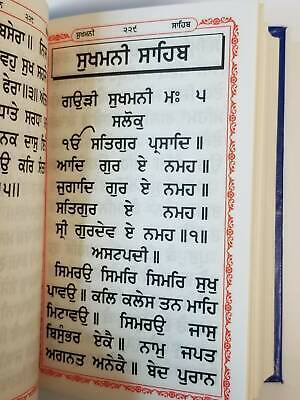 ਸੁਖਮਨੀ ੨੨੯ ਸਾਹਿਬ
ਸੁਖਮਨੀ ਸਾਹਿਬ
ਗਉੜੀ ਸੁਖਮਨੀ ਮਃ ੫
ਸਲੋਕੁ
ੴ ਸਤਿਗੁਰ ਪ੍ਰਸਾਦਿ॥
ਆਦਿ ਗੁਰ ਏ ਨਮਹ॥
ਜੁਗਾਦਿ ਗੁਰ ਏ ਨਮਹ॥
ਸਤਿਗੁਰ ਏ ਨਮਹ॥
ਸ੍ਰੀ ਗੁਰਦੇਵ ਏ ਨਮਹ॥੧॥
ਅਸਟਪਦੀ॥
ਸਿਮਰਉ ਸਿਮਰਿ ਸਿਮਰਿ ਸੁਖੁ
ਪਾਵਉ॥ ਕਲਿ ਕਲੇਸ ਤਨ ਮਾਹਿ
ਮਿਟਾਵਉ॥ ਸਿਮਰਉ ਜਾਸੁ
ਬਿਸੁੰਭਰ ਏਕੈ॥ ਨਾਮੁ ਜਪਤ
ਅਗਨਤ ਅਨੇਕੈ॥ ਬੇਦ ਪੁਰਾਨ